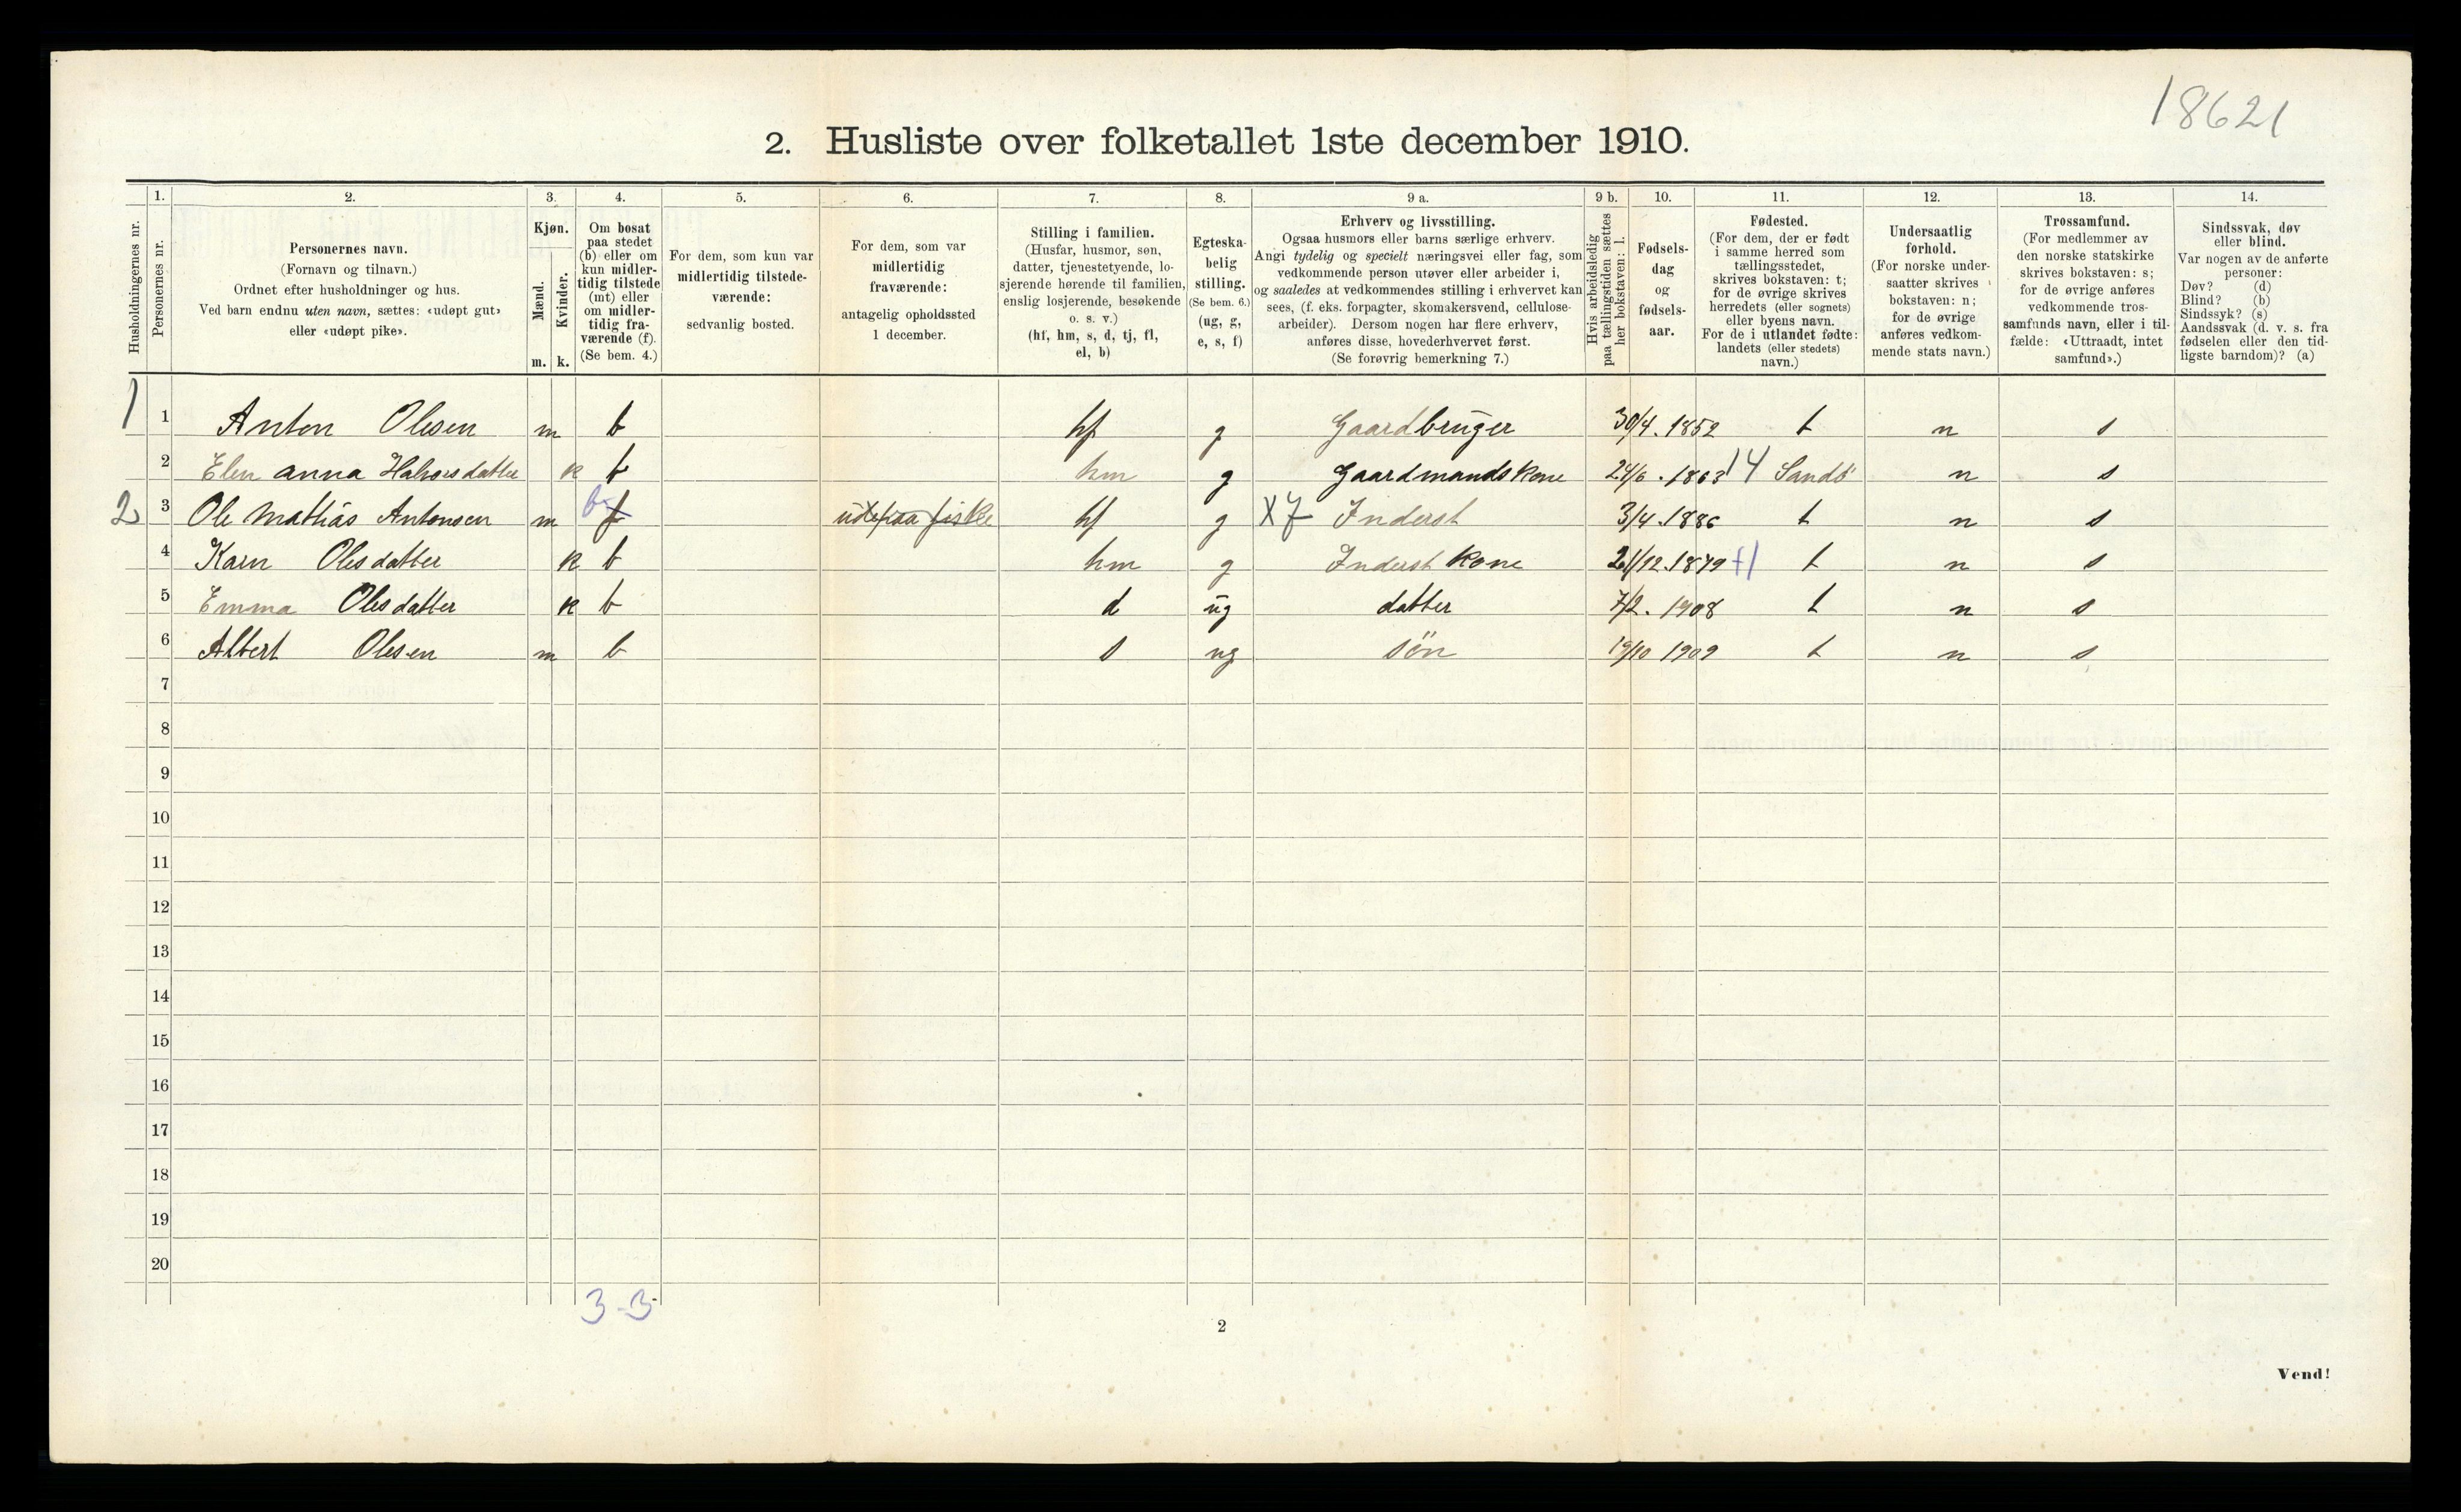 18621
2. Husliste over folketallet 1ste december 1910.
Husholdningernes nr.
1.
Personernes nr.
2.
Personernes navn.
(Fornavn og tilnavn.)
Ordnet efter husholdninger og hus.
Ved barn endnu uten navn, sættes: «udøpt gut»
eller «udøpt pike».
3.
Kjøn.
Mænd.
Kvinder.
m. k.
4.
Om bosat
paa stedet
(b) eller om
kun midler-
tidig tilstede
(mt) eller
om midler-
tidig fra-
værende (f).
(Se bem. 4.)
5.
For dem, som kun var
midlertidig tilstede-
værende:
sedvanlig bosted.
6.
For dem, som var
midlertidig
fraværende:
antagelig opholdssted
1 december.
7.
Stilling i familien.
(Husfar, husmor, søn,
datter, tjenestetyende, lo-
sjerende hørende til familien,
enslig losjerende, besøkende
o. s. v.)
(hf, hm, s, d, tj, fl,
el, b)
8.
Egteska-
belig
stilling.
(Se bem. 6.)
(ug, g,
e, s, f)
9 a.
Erhverv og livsstilling.
Ogsaa husmors eller barns særlige erhverv.
Angi tydelig og specielt næringsvei eller fag, som
vedkommende person utøver eller arbeider i,
og saaledes at vedkommendes stilling i erhvervet kan
sees, (f. eks. forpagter, skomakersvend, cellulose-
arbeider). Dersom nogen har flere erhverv,
anføres disse, hovederhvervet først.
(Se forøvrig bemerkning 7.)
9 b.
Hvis arbeidsledig
paa tællingstiden sættes
her bokstaven: l.
10.
Fødsels-
dag
og
fødsels-
aar.
11.
Fødested.
(For dem, der er født
i samme herred som
tællingsstedet,
skrives bokstaven: t;
for de øvrige skrives
herredets (eller sognets)
eller byens navn.
For de i utlandet fødte:
landets (eller stedets)
navn.)
12.
Undersaatlig
forhold.
(For norske under-
saatter skrives
bokstaven: n;
for de øvrige
anføres vedkom-
mende stats navn.)
13.
Trossamfund.
(For medlemmer av
den norske statskirke
skrives bokstaven: s;
for de øvrige anføres
vedkommende tros-
samfunds navn, eller i til-
fælde: «Uttraadt, intet
samfund».)
14.
Sindssvak, døv
eller blind.
Var nogen av de anførte
personer:
Døv? (d)
Blind? (b)
Sindssyk? (s)
Aandssvak (d. v. s. fra
fødselen eller den tid-
ligste barndom)? (a)
1 1 Anton Olesen m b hf g Gaardbruger 30/4.1852 t n s
2 Elen anna Halvorsdatter k b hm g Gaardmandskone 24/6.1863 14 Sandö n s
2 3 Ole Mathias Antonsen m b f ude paa fiske hf g X7 Inderst 3/4.1886 t n s
4 Karn Olesdatter k b hm g Inderst kone 21/12.1879 +1 t n s
5 Emma Olesdatter k b d ug datter 7/2.1908 t n s
6 Albert Olesen m b s ug sön 19/10 1909 t n s
7
8
9
10
11
12
13
14
15
16
17
18
19
20
3-3
2
Vend!